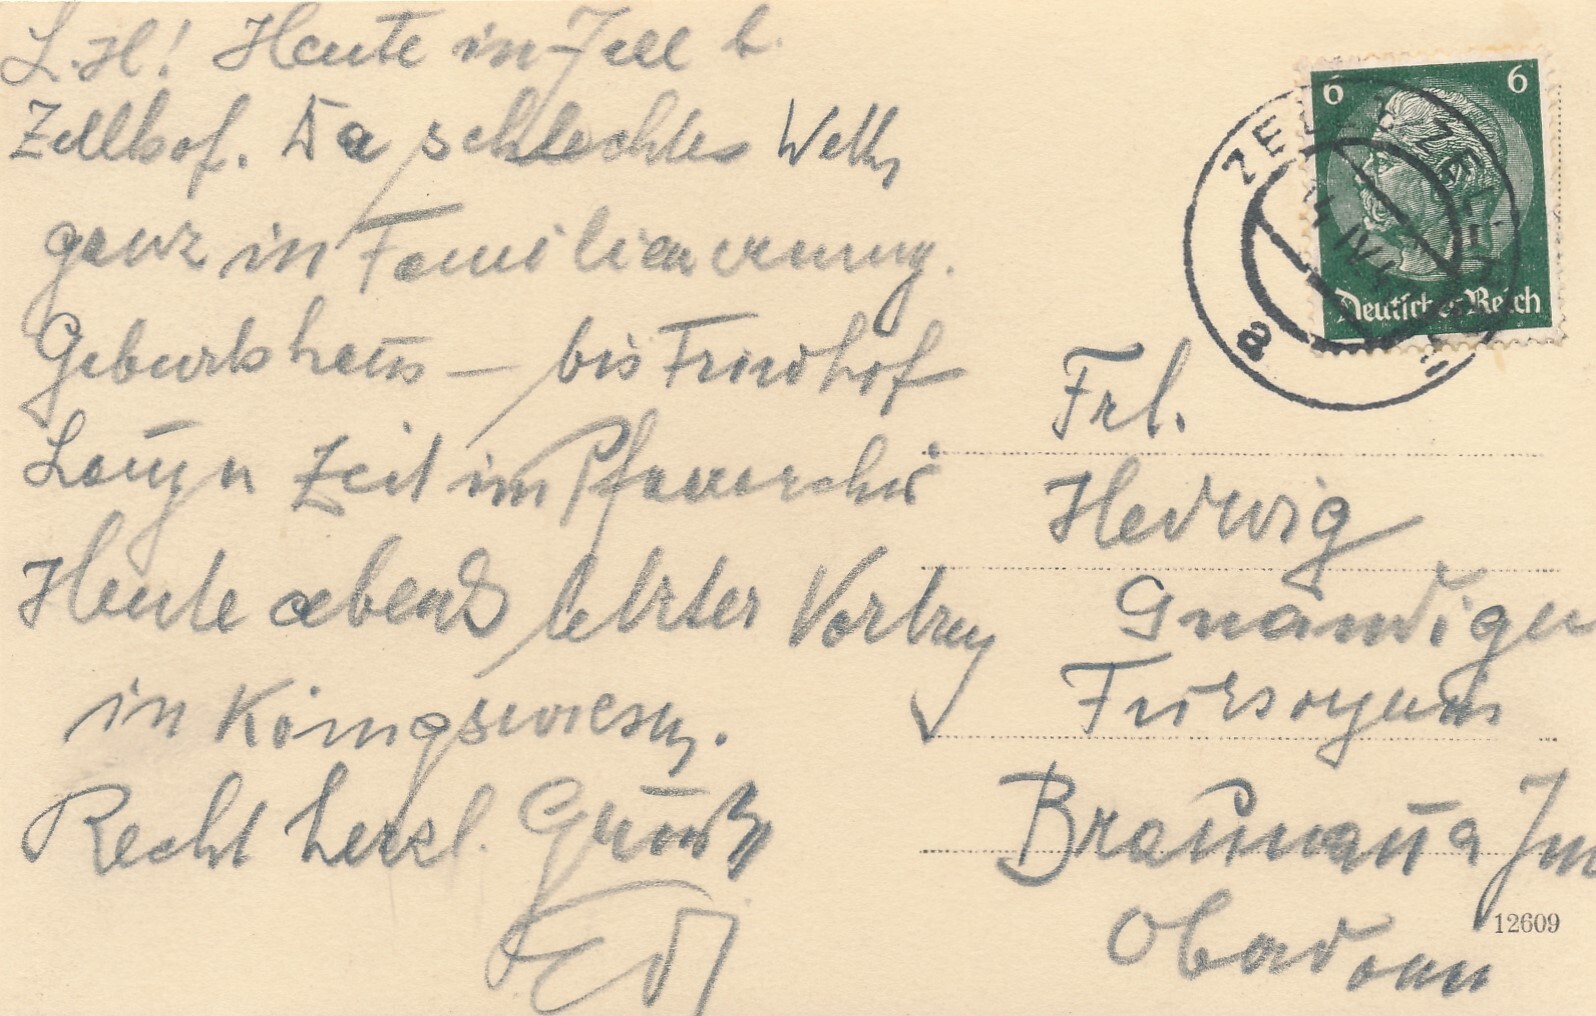 L. H! Heute in Zell b.
Zellhof. Da schlechtes Wetter,
ganz in Familien
Geburtshaus – bis Friedhof
Lange Zeit im Pfarrarchiv
Heute abend letzter Vortrag
in Königswiesen.
Recht herzl. Grüße
Edi
6 6
Deutsches Reich
ZELL b. ZELLHOF
a
Frl.
Hedwig
Fürsorgerin
Braunau a Inn
Oberdonau
12609